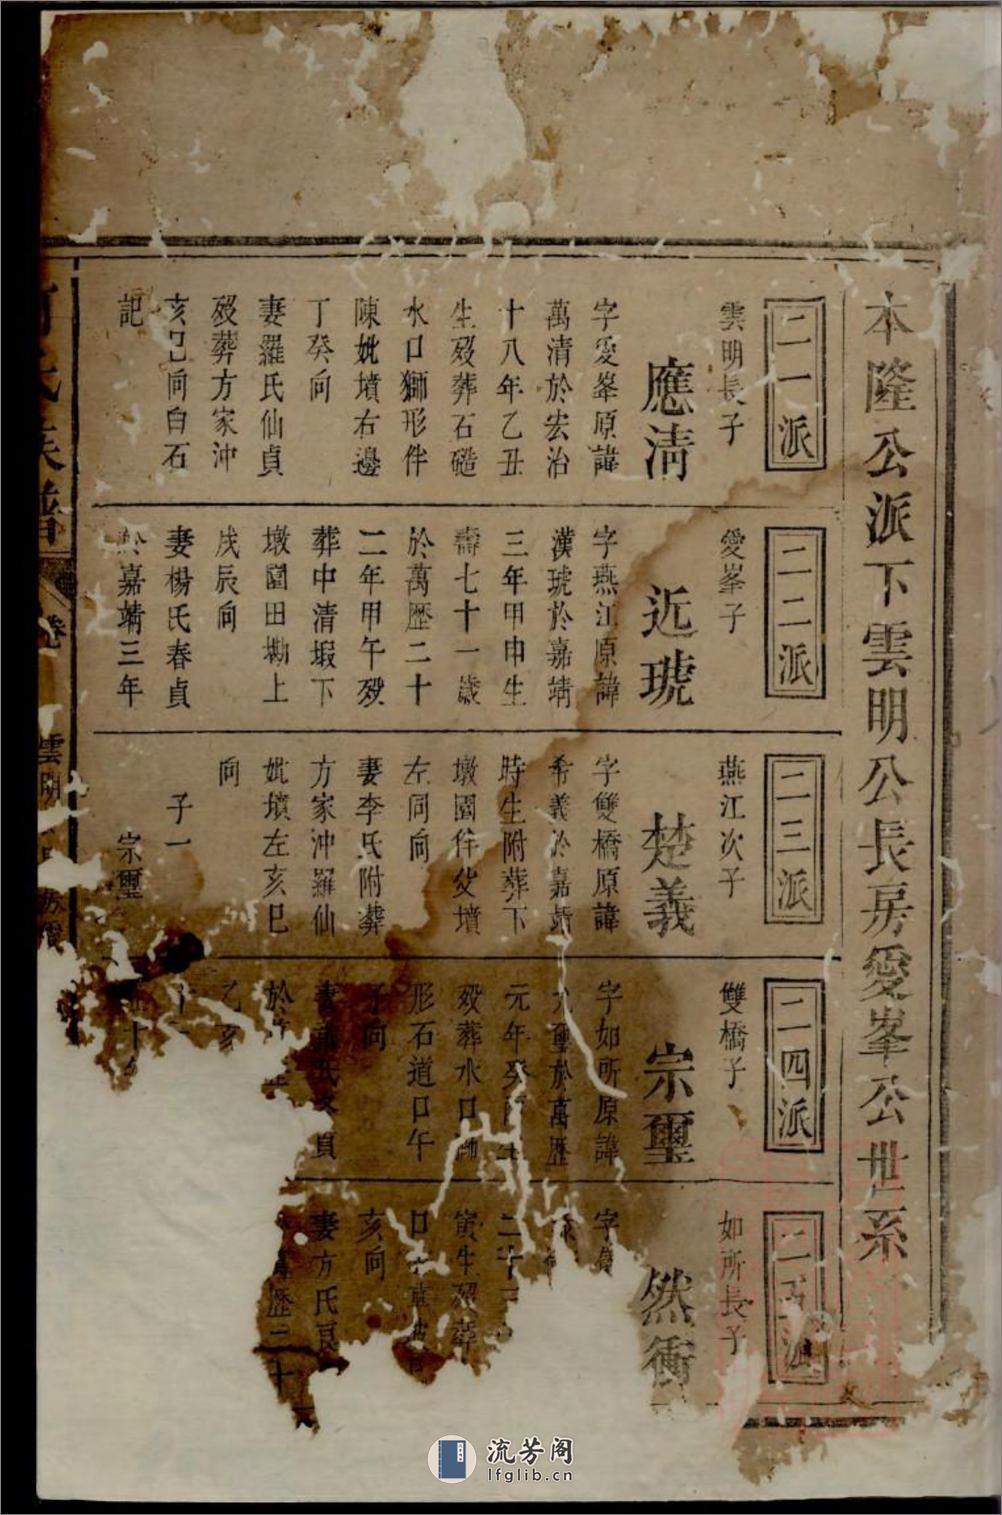 本隆公派下雲明公長房愛峯公世系
二一派
雲明長子
應清
字愛峯原諱
萬清於宏治
十八年乙丑
生歿葬石磋
水口獅形伴
陳妣墳右邊
丁癸向
妻羅氏仙貞
歿葬方家冲
亥巳向白石
記
二二派
愛峯子
近琥
字燕江原諱
漢琥於嘉靖
三年甲申生
壽七十一歲
於萬歷二十
二年甲午歿
葬中清塅下
墩園田塝上
戌辰向
妻楊氏春貞
於嘉靖三年
二三派
燕江次子
楚義
字雙橋原諱
希義於嘉靖
時生附葬下
墩園伴父墳
左同向
妻李氏附葬
方家冲羅仙
妣墳左亥巳
向
子一
宗璽
二四派
雙橋子
宗璽
字如所原諱
大璽於萬歷
元年癸
歿葬水口獅
形石道口午
子向
妻 氏 貞
於
乙亥
十一
十
二五派
如所長子
然衝
字
二十
寅生歿葬
口
亥向
妻方氏良
萬歷二十
氏族譜
卷
雲明
流芳阁
lfglib.cn